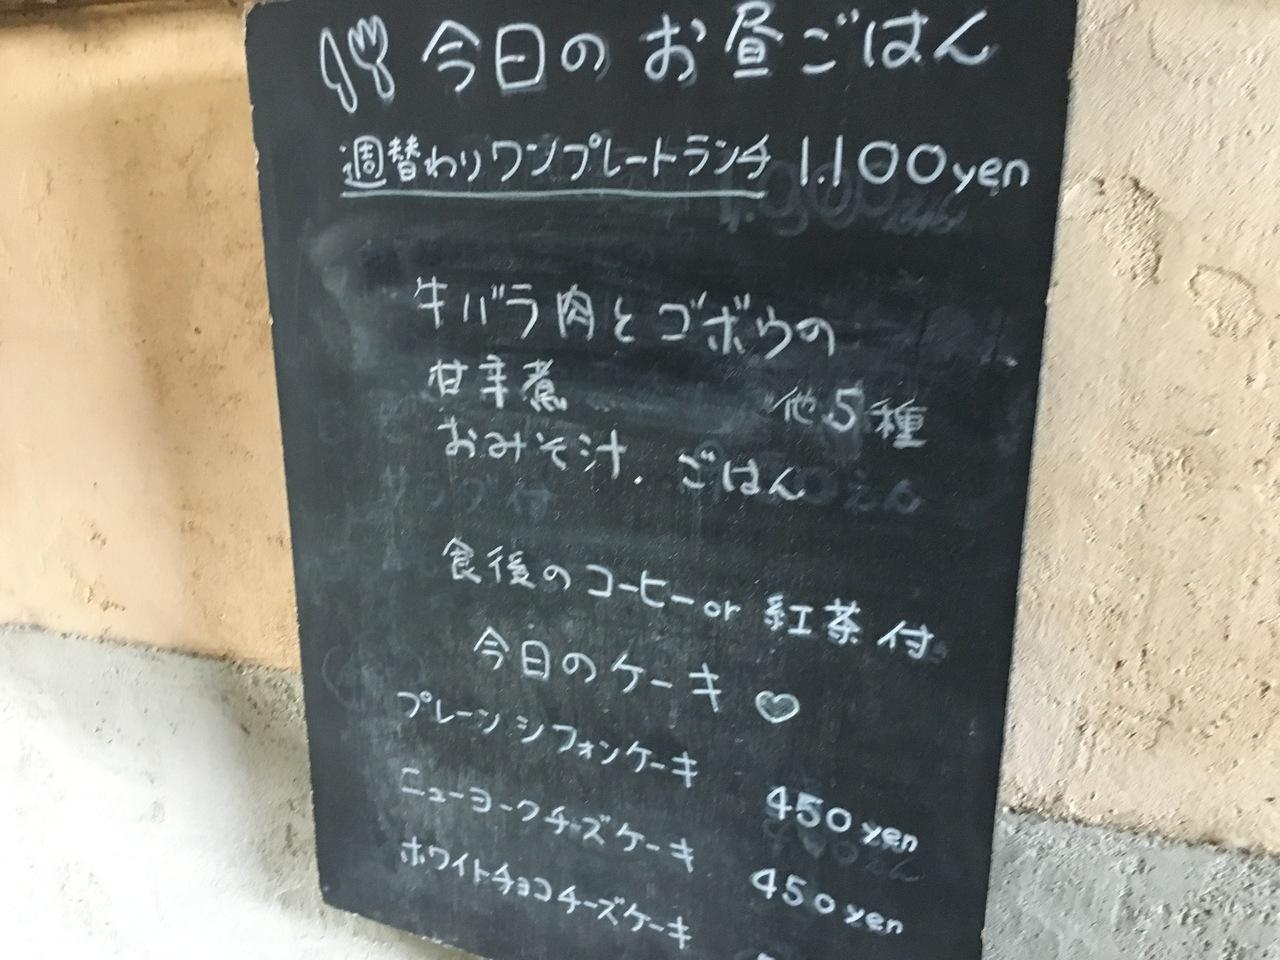 今日のお昼ごはん
週替わりワンプレートランチ 1.100yen
牛バラ肉とゴボウの
甘辛煮 他5種
おみそ汁. ごはん
食後のコーヒーor 紅茶付
今日のケーキ♡
プレーンシフォンケーキ 450yen
ニューヨークチーズケーキ 450yen
ホワイトチョコチーズケーキ